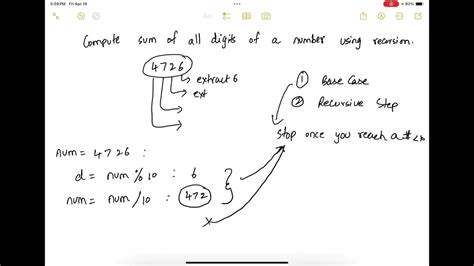 5:59PM Fri Apr 19
93%
Compute sum of all digits of a number using recursion.
4726
extract 6
ext
① Base Case
② Recursive Step
Stop once you reach a # <10
num = 4726 :
d = num % 10 : 6
num = num/10 : 472